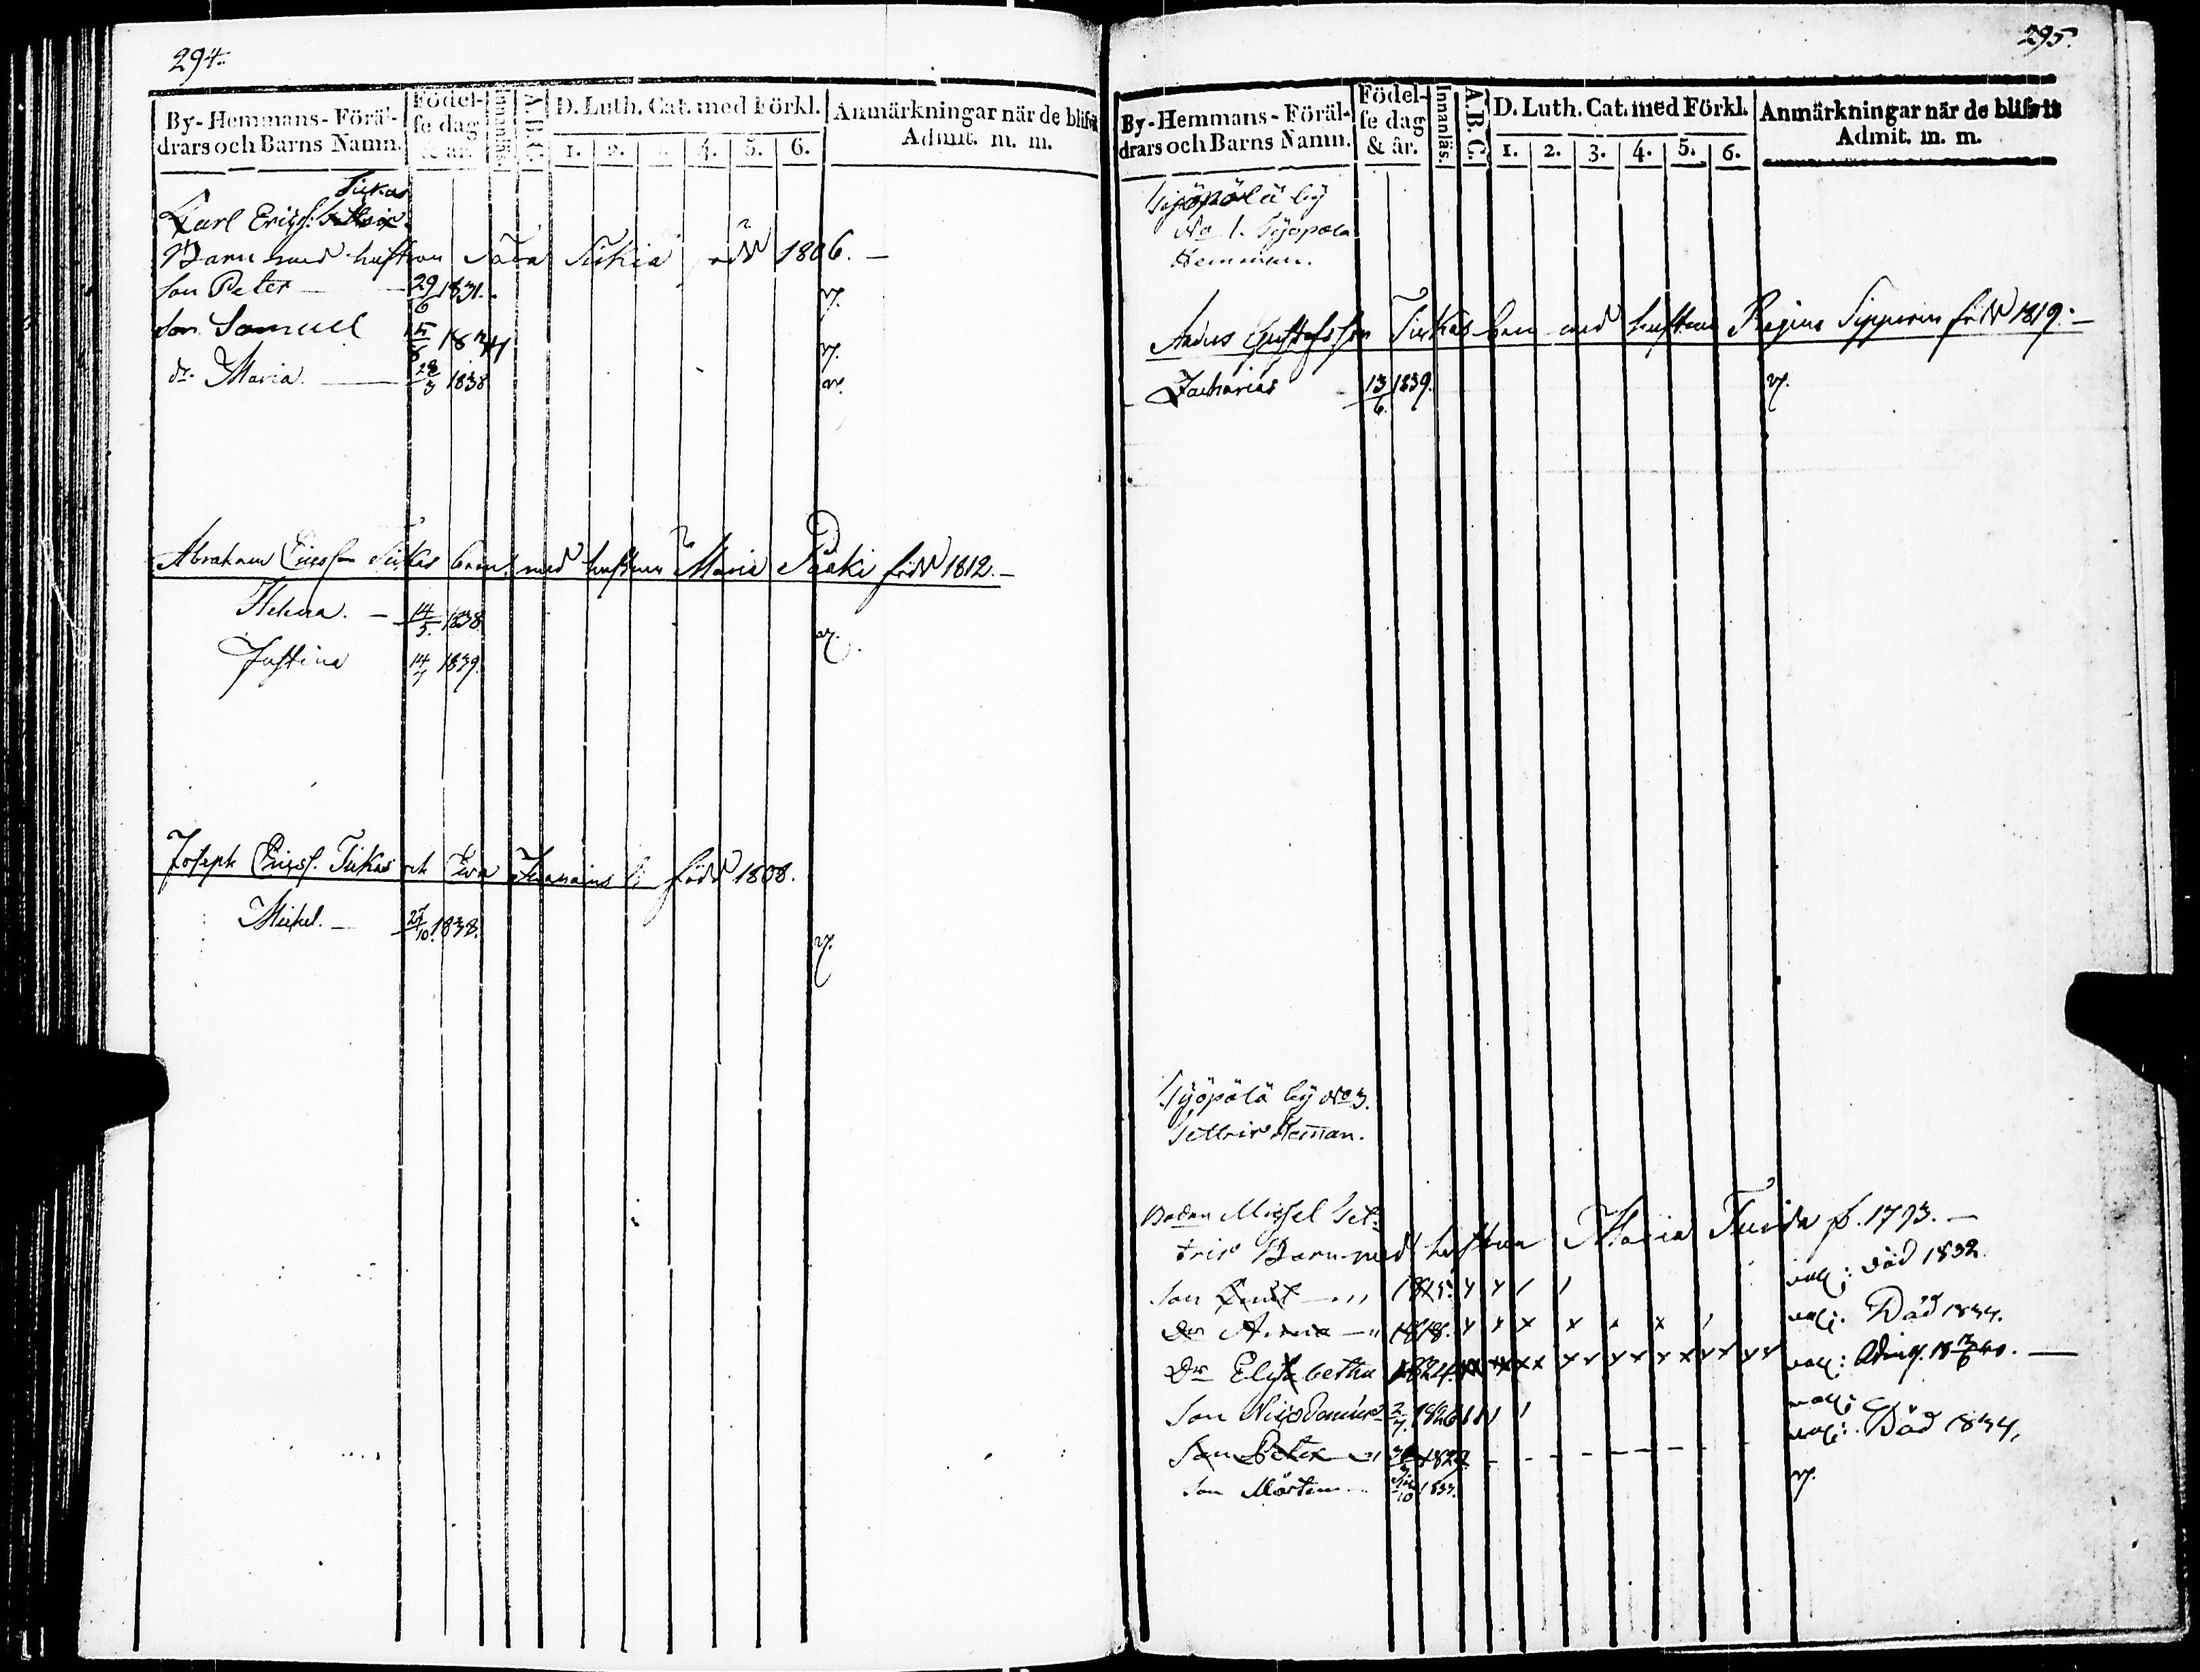 294.
By-Hemmans-Föräl-
drars och Barns Namn.
Födel-
se dag
& år.
Innanläs.
A.B.C.
D. Luth. Cat. med Förkl.
1. 2. 4. 5. 6.
Anmärkningar när de blifvit
Admit. m. m.
Tirkas
Karl Erics:
Barn med hustrun 1806. —
Son Peter — 29/6 1831. v.
Son Samuel 15/6 18 v.
dr. Maria. — 28/3 1838 v.
Abraham Ericsson Tirkas barn med hustrun Maria Pääki född 1812. —
Helena. — 14/5. 1838 v.
Justina 14/7 1839.
Joseph Ericss. Tirkas och Ewa född 1808.
Mickel. — 27/10. 1838. v.
295.
By-Hemmans-Föräl-
drars och Barns Namn.
Födel-
se dag
& år.
Innanläs.
A.B.C.
D. Luth. Cat. med Förkl.
1. 2. 3. 4. 5. 6.
Anmärkningar när de blifvit
Admit. m. m.
Työpölä by
No 1. Työpölä
Hemman.
Gustafsson Tirkas barn med hustrun Regina Sipponen född 1819. —
Zacharias 13/6. 1839. v.
Työpölä by No 3.
Hemman.
Bonden Michel
Barn med hustrun Maria f. 1793. —
Son 1815. x x / / vac: död 1832.
Dr Anna — " 1818. x x x x x x / vac: Död 1834.
Dr Elisabetha 1824. vac: Admis. 18 3/6 40. —
Son Nicodemus 2/7. 1826 / / / / vac:
Son Peter — " 1829. - - - - - - vac: Död 1834.
Son Mårten — 1833. v.